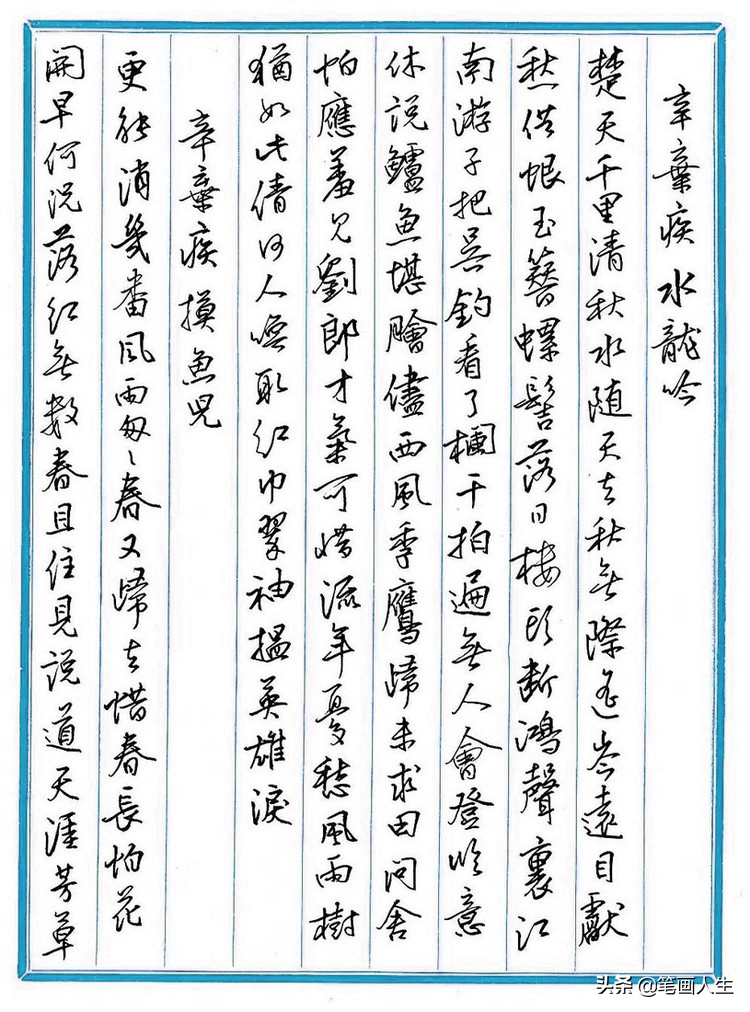 辛棄疾 水龍吟
楚天千里清秋水随天去秋無際遥岑遠目獻
愁供恨玉簪螺髻落日樓頭斷鴻聲裏江
南游子把吴鈎看了欄干拍遍無人會登臨意
休説鱸魚堪膾儘西風季鷹歸未求田問舍
怕應羞見劉郎才氣可惜流年憂愁風雨樹
猶如此倩何人唤取红巾翠袖搵英雄淚
辛棄疾 摸魚兒
更能消幾番風雨匆〻春又歸去惜春長怕花
開早何况落红無數春且住見説道天涯芳草
头条 @笔画人生